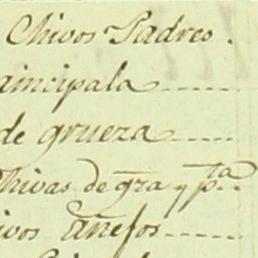 Chivos Padres.
aincipala
de grueza
Chivas de gza y pta
ivos añejos